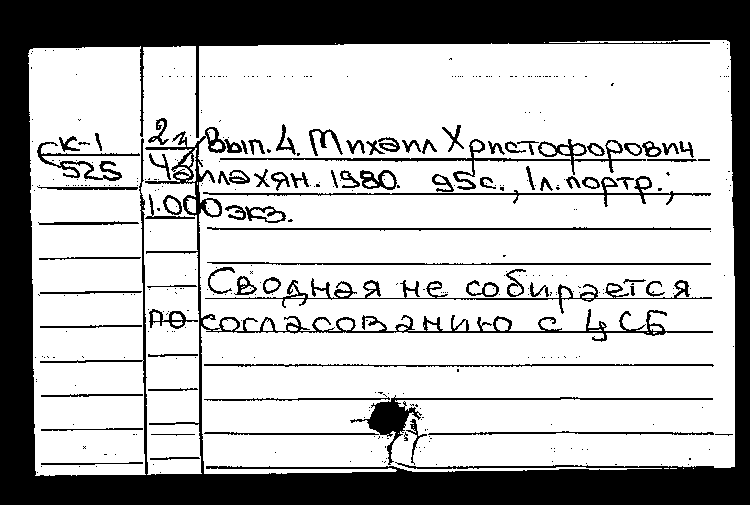 К-1 2л Вып. 4. Михаил Христофорович
525 Чайлахян. 1980. 95с., 1л. портр.;
1.000 экз.
Сводная не собирается
по согласованию с ЦСБ